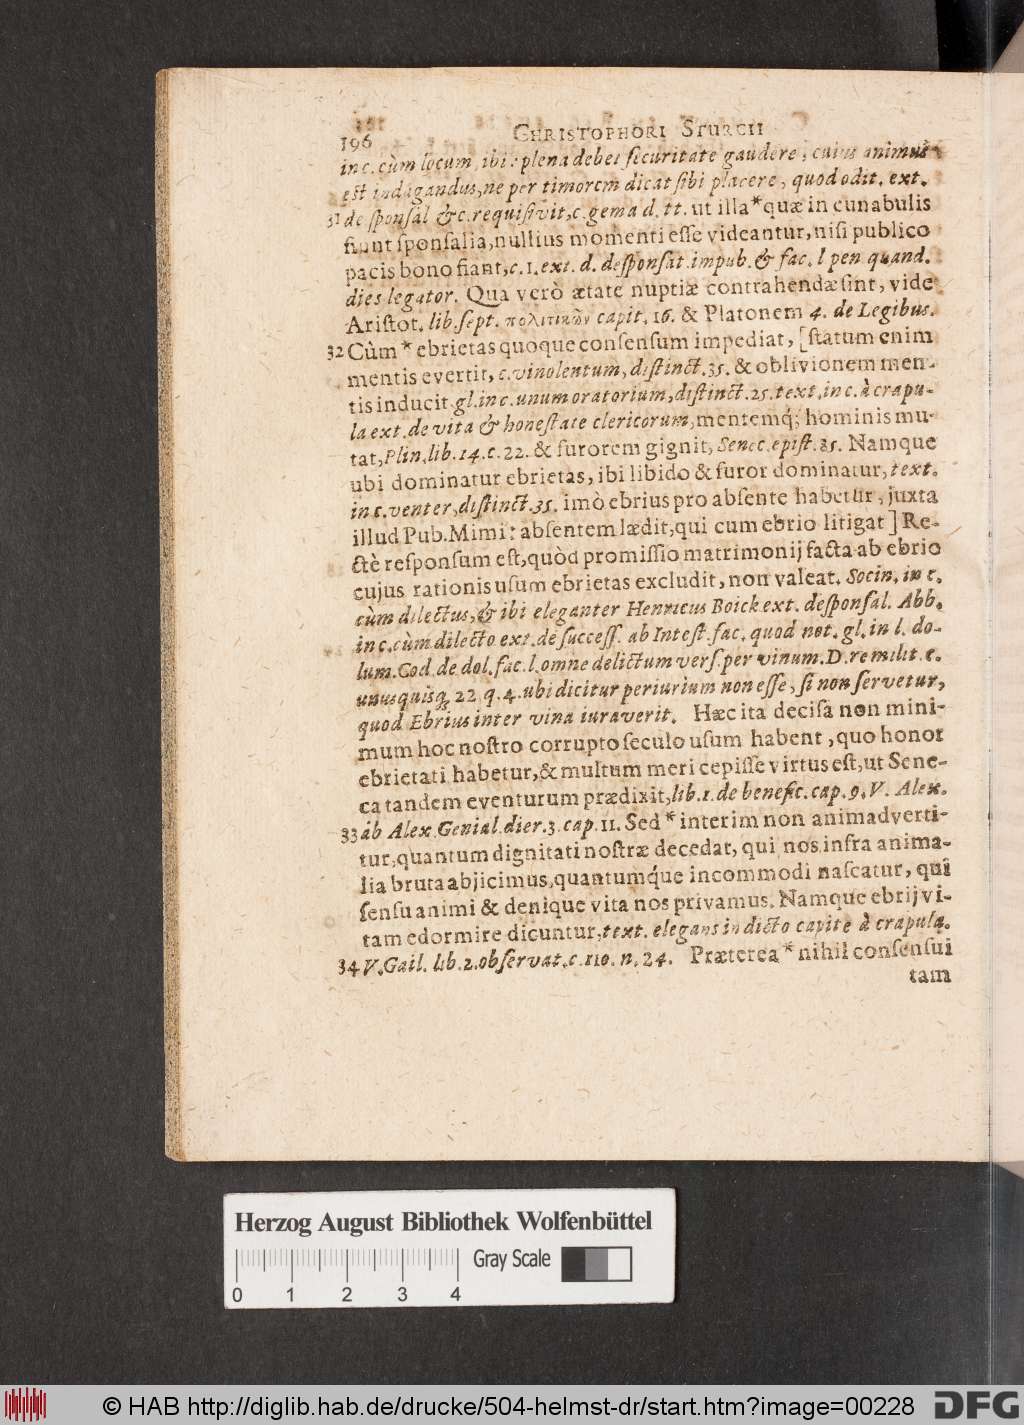 196 CHRISTOPHORI STURCII
in c. cùm locum, ibi: plena debet securitate gaudere, cuius animus
est indagandus, ne per timorem dicat sibi placere, quod odit. ext.
31 de sponsal & c. requisivit, c. gema d. tt. ut illa * quæ in cunabulis
fiunt sponsalia, nullius momenti esse videantur, nisi publico
pacis bono fiant, c. 1. ext. d. desponsat. impub. & fac. l pen quand.
dies legator. Qua verò ætate nuptiæ contrahendæ sint, vide
Aristot. lib. sept. πολιτικῶν capit. 16. & Platonem 4. de Legibus.
32 Cùm * ebrietas quoque consensum impediat, [statum enim
mentis evertit, c. vinolentum, distinct. 35. & oblivionem men-
tis inducit gl. in c. unum oratorium, distinct. 25. text. in c. à crapu-
la ext. de vita & honestate clericorum, mentemq́; hominis mu-
tat, Plin. lib. 14. c. 22. & furorem gignit, Senec. epist. 85. Namque
ubi dominatur ebrietas, ibi libido & furor dominatur, text.
in c. venter, distinct. 35. imò ebrius pro absente habetur, juxta
illud Pub. Mimi: absentem lædit, qui cum ebrio litigat] Re-
ctè responsum est, quòd promissio matrimonij facta ab ebrio
cujus rationis usum ebrietas excludit, non valeat. Socin. in c.
cùm dilectus, & ibi eleganter Henricus Boick ext. desponsal. Abb.
in c. cùm dilecto ext. de success. ab Intest. fac. quod not. gl. in l. do-
lum. Cod. de dol. fac. l. omne delictum vers. per vinum. D. re milit c.
unusquisq; 22 q. 4. ubi dicitur periurium non esse, si non servetur,
quod Ebrius inter vina iuraverit. Hæc ita decisa non mini-
mum hoc nostro corrupto seculo usum habent, quo honor
ebrietati habetur, & multum meri cepisse virtus est, ut Sene-
ca tandem eventurum prædixit, lib. 1. de benefic. cap. 9. V. Alex.
33 ab Alex. Genial. dier. 3. cap. 11. Sed * interim non animadverti-
tur, quantum dignitati nostræ decedat, qui nos infra anima-
lia bruta abjicimus, quantumq́ue incommodi nascatur, quî
sensu animi & denique vita nos privamus. Namque ebrij vi-
tam edormire dicuntur, text. elegans in dicto capite à crapula.
34 V. Gail. lib. 2. observat. c. 110. n. 24. Præterea * nihil consensui
tam
Herzog August Bibliothek Wolfenbüttel
Gray Scale
0 1 2 3 4
© HAB http://diglib.hab.de/drucke/504-helmst-dr/start.htm?image=00228
DFG